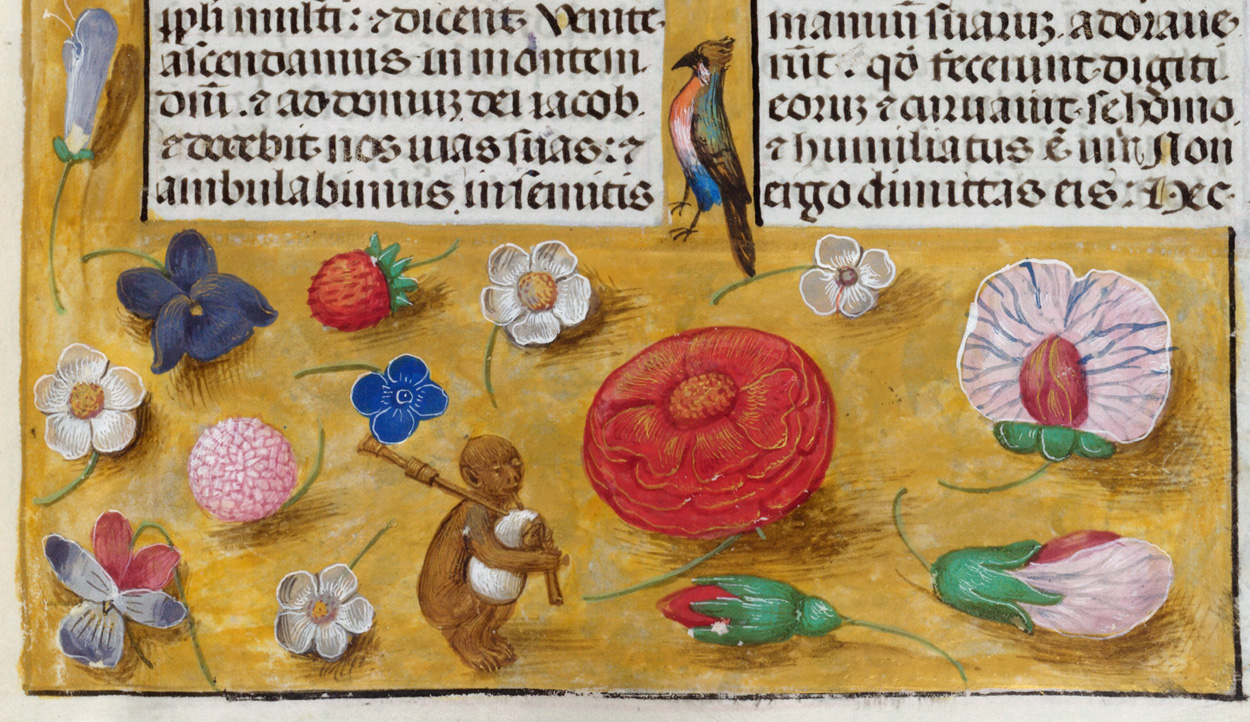 ppli multi: ⁊ dicent. Venite
ascendamus in montem
dñi. ⁊ ad domuʒ dei iacob.
⁊ docebit nos uias suas: ⁊
ambulabimus. in semitis
manuũ suaruʒ. adoraue
rũt. qđ fecerunt digiti
eoruʒ ⁊ curuauit se homo.
⁊ humiliatus ẽ uir. Non
ergo dimittas eis: Hec